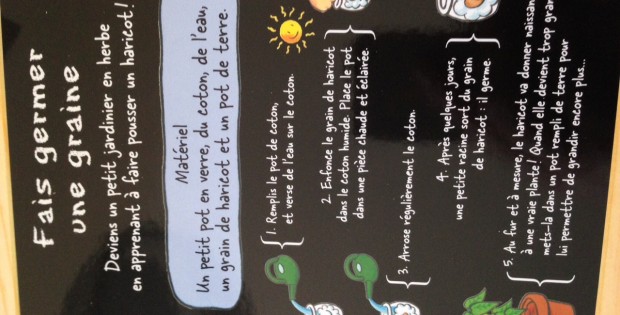 Fais germer
une graine
Deviens un petit jardinier en herbe
en apprenant à faire pousser un haricot!
Matériel
Un petit pot en verre, du coton, de l'eau,
un grain de haricot et un pot de terre.
1. Remplis le pot de coton,
et verse de l'eau sur le coton.
2. Enfonce le grain de haricot
dans le coton humide. Place le pot
dans une pièce chaude et éclairée.
3. Arrose régulièrement le coton.
4. Après quelques jours,
une petite racine sort du grain
de haricot : il germe.
5. Au fur et à mesure, le haricot va donner
à une vraie plante! Quand elle devient trop
mets-la dans un pot rempli de terre pour
lui permettre de grandir encore plus...